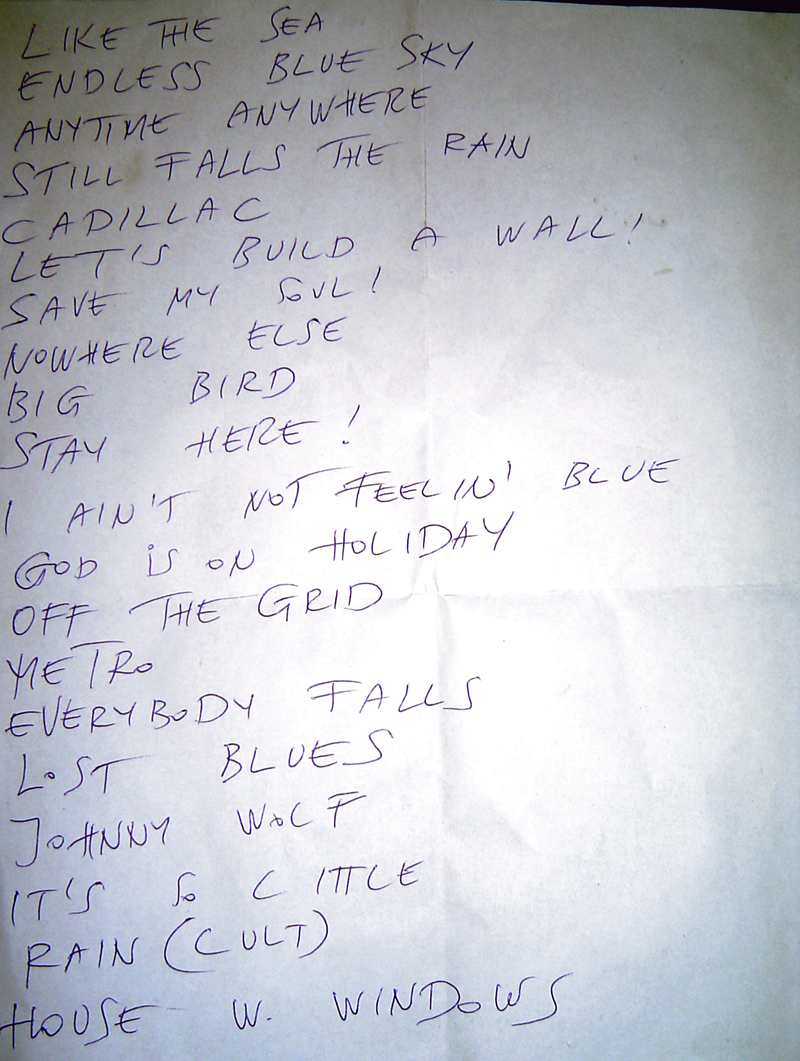 LIKE THE SEA
ENDLESS BLUE SKY
ANYTIME ANYWHERE
STILL FALLS THE RAIN
CADILLAC
LET'S BUILD A WALL!
SAVE MY SOUL!
NOWHERE ELSE
BIG BIRD
STAY HERE!
I AIN'T NOT FEELIN' BLUE
GOD iS ON HOLIDAY
OFF THE GRID
METRO
EVERYBODY FALLS
LOST BLUES
JOHNNY WOLF
IT'S SO LITTLE
RAIN (CULT)
HOUSE W. WINDOWS